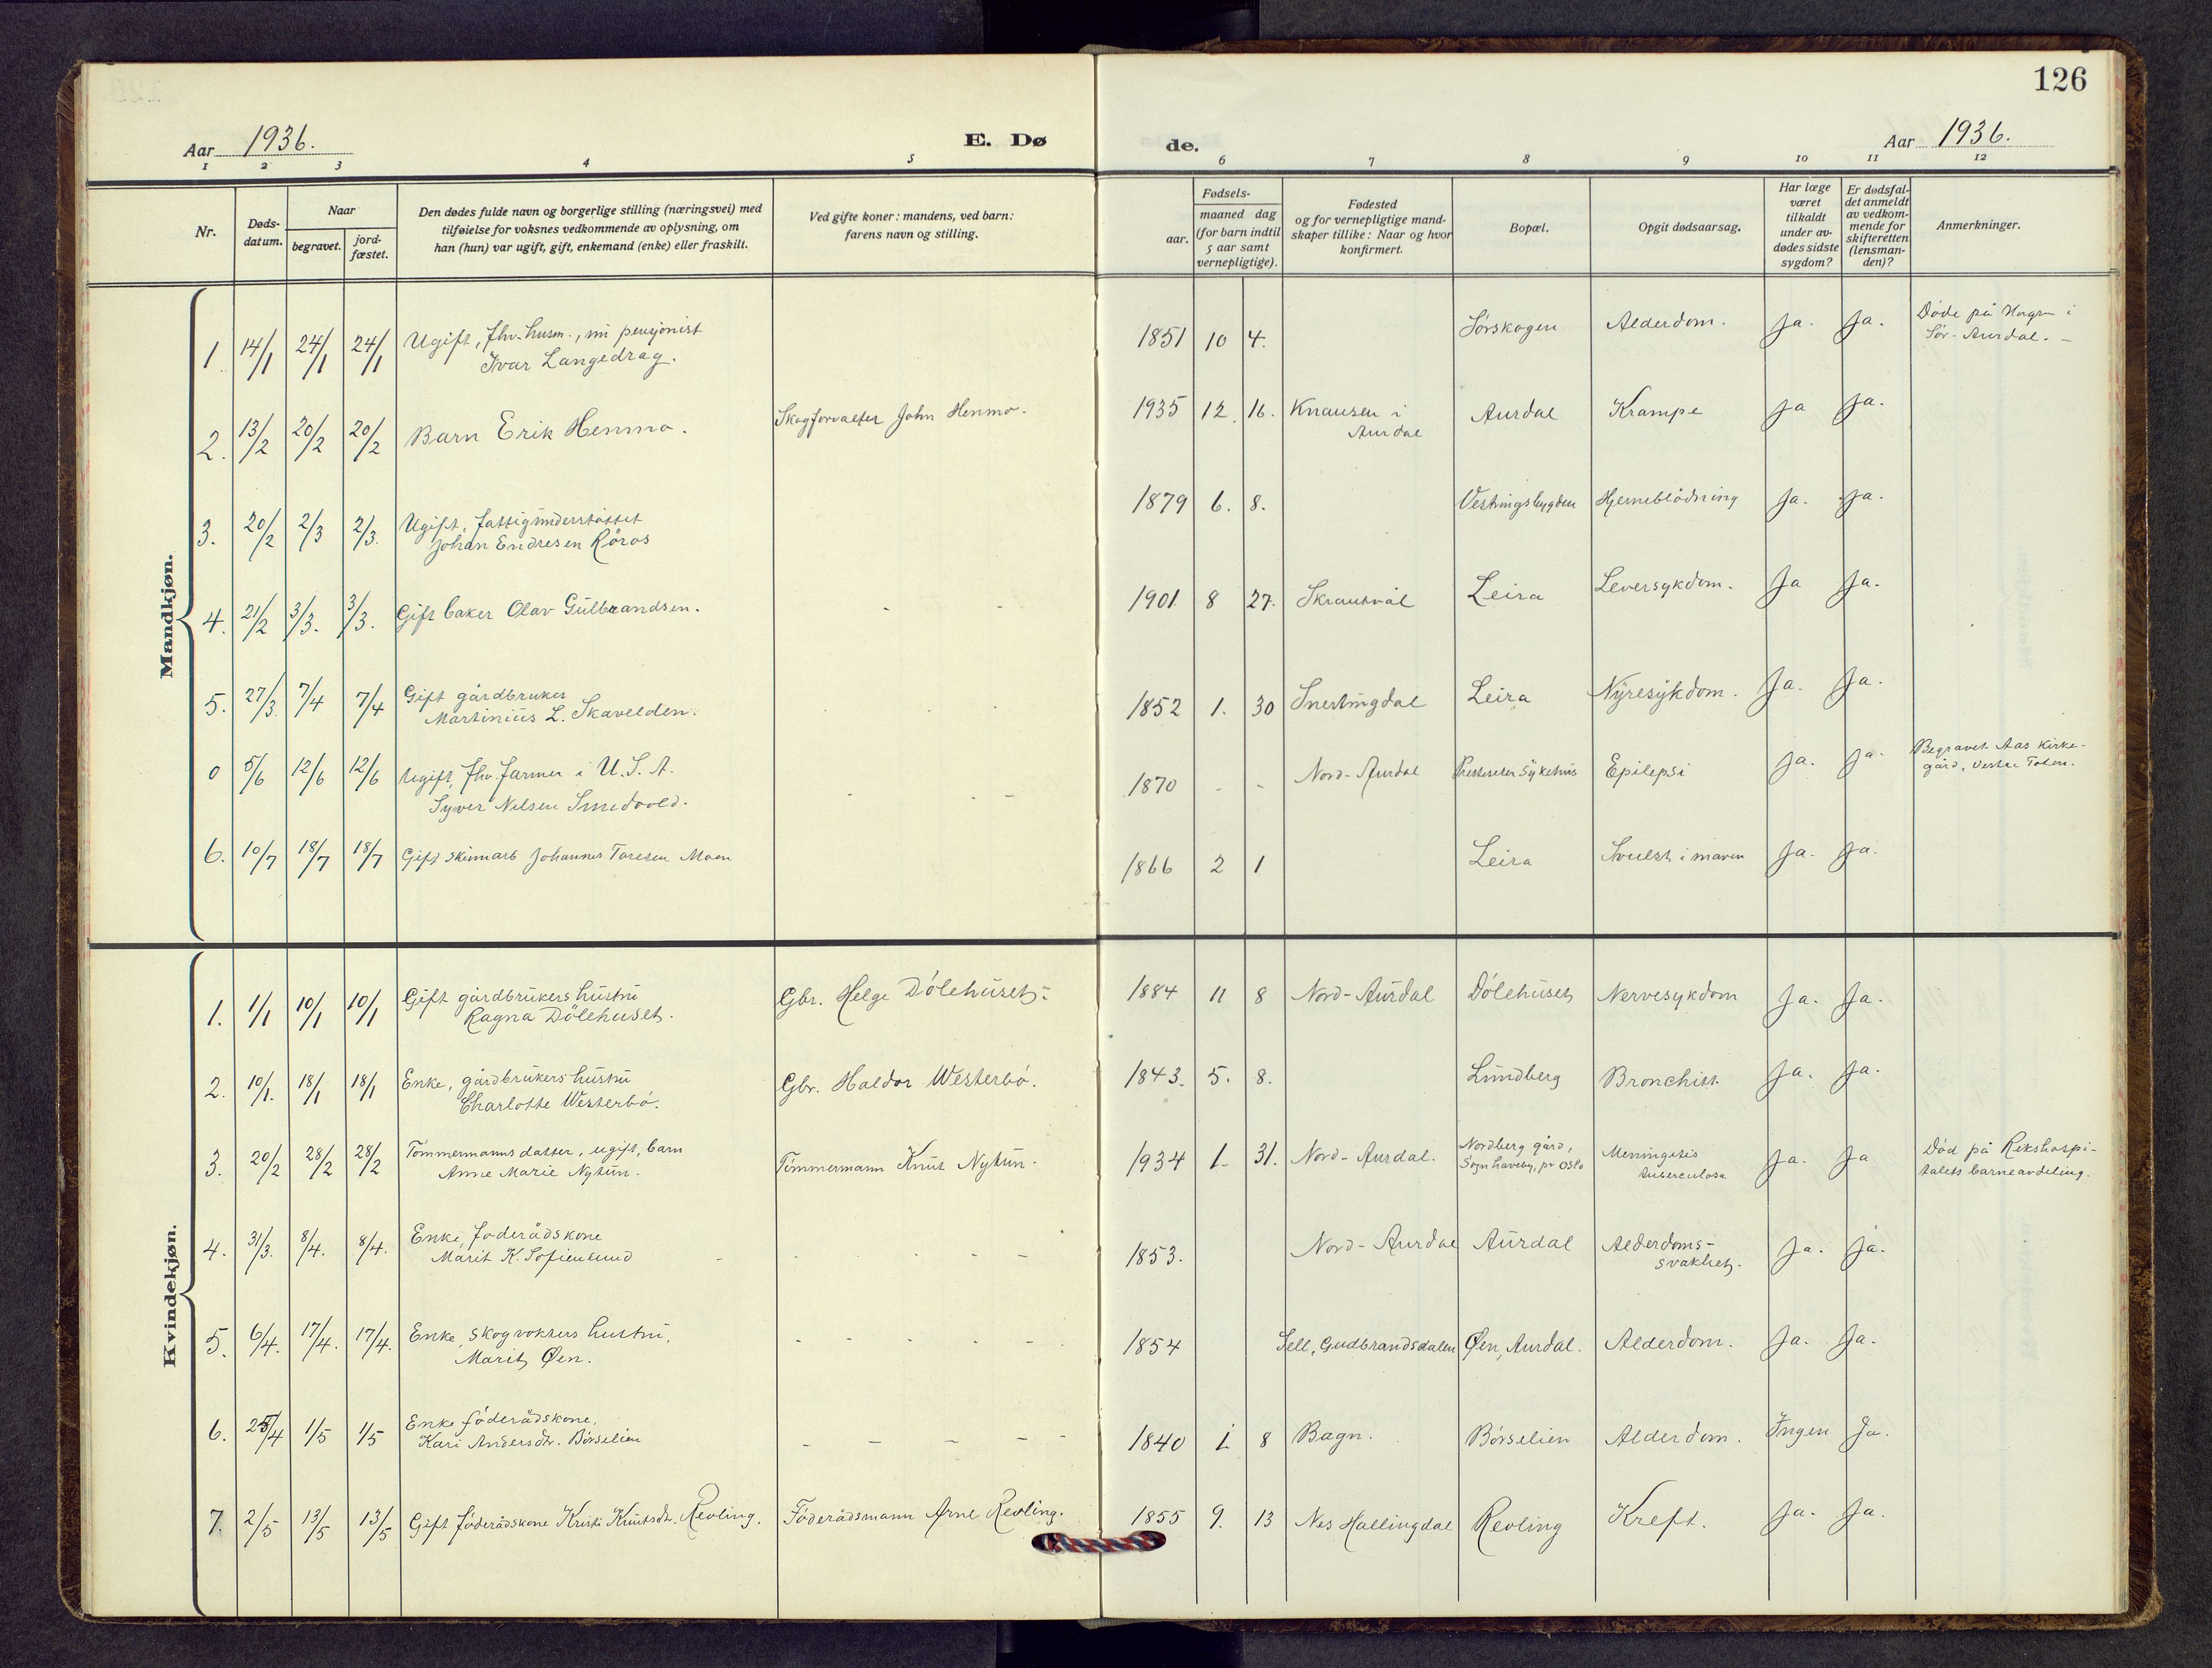 126
Aar 1936.
E. Dø
de.
Aar 1936.
1 2 3 4 5 6 7 8 9 10 11 12
Nr.
Døds-
datum.
Naar
begravet.
jord-
fæstet.
Den dødes fulde navn og borgerlige stilling (næringsvei) med
tilføielse for voksnes vedkommende av oplysning, om
han (hun) var ugift, gift, enkemand (enke) eller fraskilt.
Ved gifte koner: mandens, ved barn:
farens navn og stilling.
Fødsels-
aar.
maaned dag
(for barn indtil
5 aar samt
vernepligtige).
Fødested
og for vernepligtige mand-
skaper tillike: Naar og hvor
konfirmert.
Bopæl.
Opgit dødsaarsag.
Har læge
været
tilkaldt
under av-
dødes sidste
sygdom?
Er dødsfal-
det anmeldt
av vedkom-
mende for
skifteretten
(lensman-
den)?
Anmerkninger.
Mandkjøn.
1. 14/1 24/1 24/1 Ugift, fhv. husm., nu pensjonist
Ivar Langedrag.
1851 10 4. Sørskogen Alderdom. Ja. Ja. Døde på Hagen i
Sør-Aurdal. -
2. 13/2 20/2 20/2 Barn Erik Henmo. Skogforvalter John Henmo.
1935 12. 16. Knausen i
Aurdal
Aurdal Krampe Ja Ja.
3. 20/2 2/3 2/3. Ugift, fattigunderstøttet
Johan Endresen Røros
1879 6. 8. Vestringsbygden Hjerneblødning Ja. Ja.
4. 21/2 3/3. 3/3. Gift baker Olav Gulbrandsen. - -
1901 8 27. Skrautvål Leira Leversykdom. Ja Ja.
5. 27/3 7/4 7/4 Gift gårdbruker
Martinius L. Skavelden.
1852 1. 30 Snertingdal Leira Nyresykdom. Ja. Ja.
0 5/6 12/6 12/6 Ugift, fhv. farmer i U.S.A.
Syver Nilsen Smedvold. - - -
1870 - - Nord-Aurdal Presteseter Sykehus Epilepsi Ja. Ja. Begravet Aas kirke-
gård, Vestre Toten.
6. 10/7 18/7 18/7 Gift skinnarb Johannes Toresen Moen
1866 2 1 Leira Svulst i maven Ja. Ja.
Kvindekjøn.
1. 1/1 10/1 10/1 Gift gårdbrukers hustru
Ragna Dølehuset. Gbr. Helge Dølehuset.
1884 11 8 Nord-Aurdal Dølehuset Nervesykdom Ja. Ja.
2. 10/1. 18/1 18/1 Enke, gårdbrukers hustru
Charlotte Westerbø. Gbr. Haldor Westerbø.
1843. 5. 8. Lundberg Bronchitt. Ja. Ja.
3. 20/2 28/2 28/2 Tømmermanns datter, ugift, barn
Anne Marie Nytun. Tømmermann Knut Nytun.
1934 1. 31. Nord-Aurdal. Nordberg gård,
Sogn haveby, pr Oslo
Meningitis
tuberculosa
Ja. Ja Død på Rikshospi-
talets barneavdeling.
4. 31/3. 8/4. 8/4. Enke, føderådskone
Marit K. Sofienlund - - - - - -
1853. Nord-Aurdal Aurdal Alderdoms-
svakhet.
Ja. Ja.
5. 6/4. 17/4. 17/4. Enke, skogvokters hustru,
Marit Øen. - - - - -
1854 Sell, Gudbrandsdalen Øen, Aurdal. Alderdom. Ja. Ja.
6. 25/4 1/5 1/5 Enke føderådskone,
Kari Andersdtr. Børselien - - - - -
1840 1 8 Bagn. Børselien Alderdom. Ingen Ja.
7. 2/5 13/5 13/5 Gift føderådskone Kristi Knutsdtr. Revling. Føderådsmann Arne Revling.
1855 9. 13 Nes Hallingdal Revling Kreft. Ja. Ja.